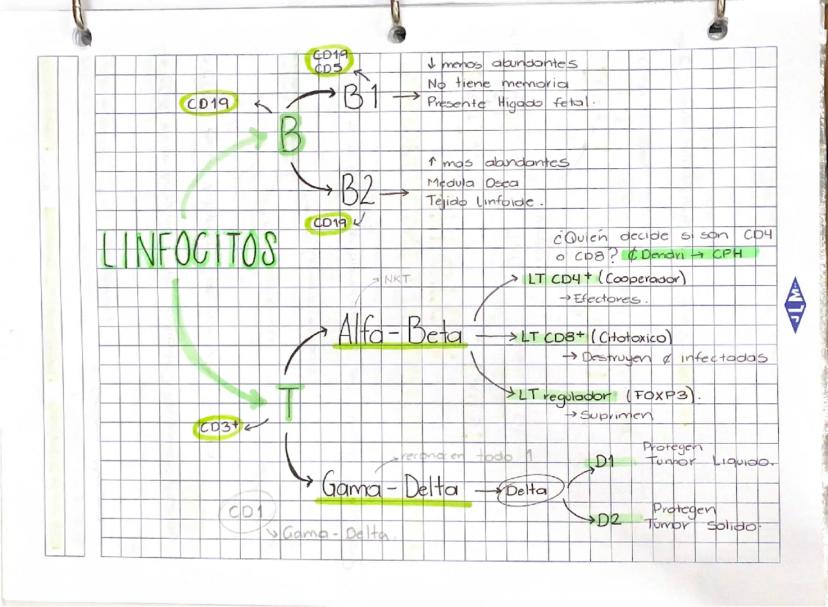 CD19
CD5
↓ menos abundantes
No tiene memoria
Presente Higado fetal.
CD19
B1
B
↑ mas abundantes
Medula Osea
Tejido Linfoide.
B2
CD19
LINFOCITOS
¿Quién decide si son CD4
o CD8? ¢ Dendri → CPH
NKT
LT CD4+ (Cooperador)
→ Efectores.
Alfa-Beta
LT CD8+ (Citotoxico)
→ Destruyen ¢ infectadas
JLM
T
LT regulador (FOXP3).
→ Suprimen
CD3+
en todo 1
Gama-Delta
Delta
D1
Protegen
Tumor Liquido.
CD1
↳ Gama-Delta.
D2
Protegen
Tumor Solido.